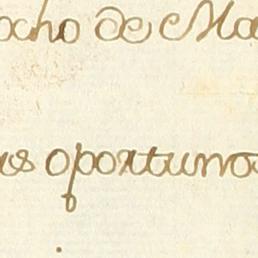 ocho de Ma
os oportunos